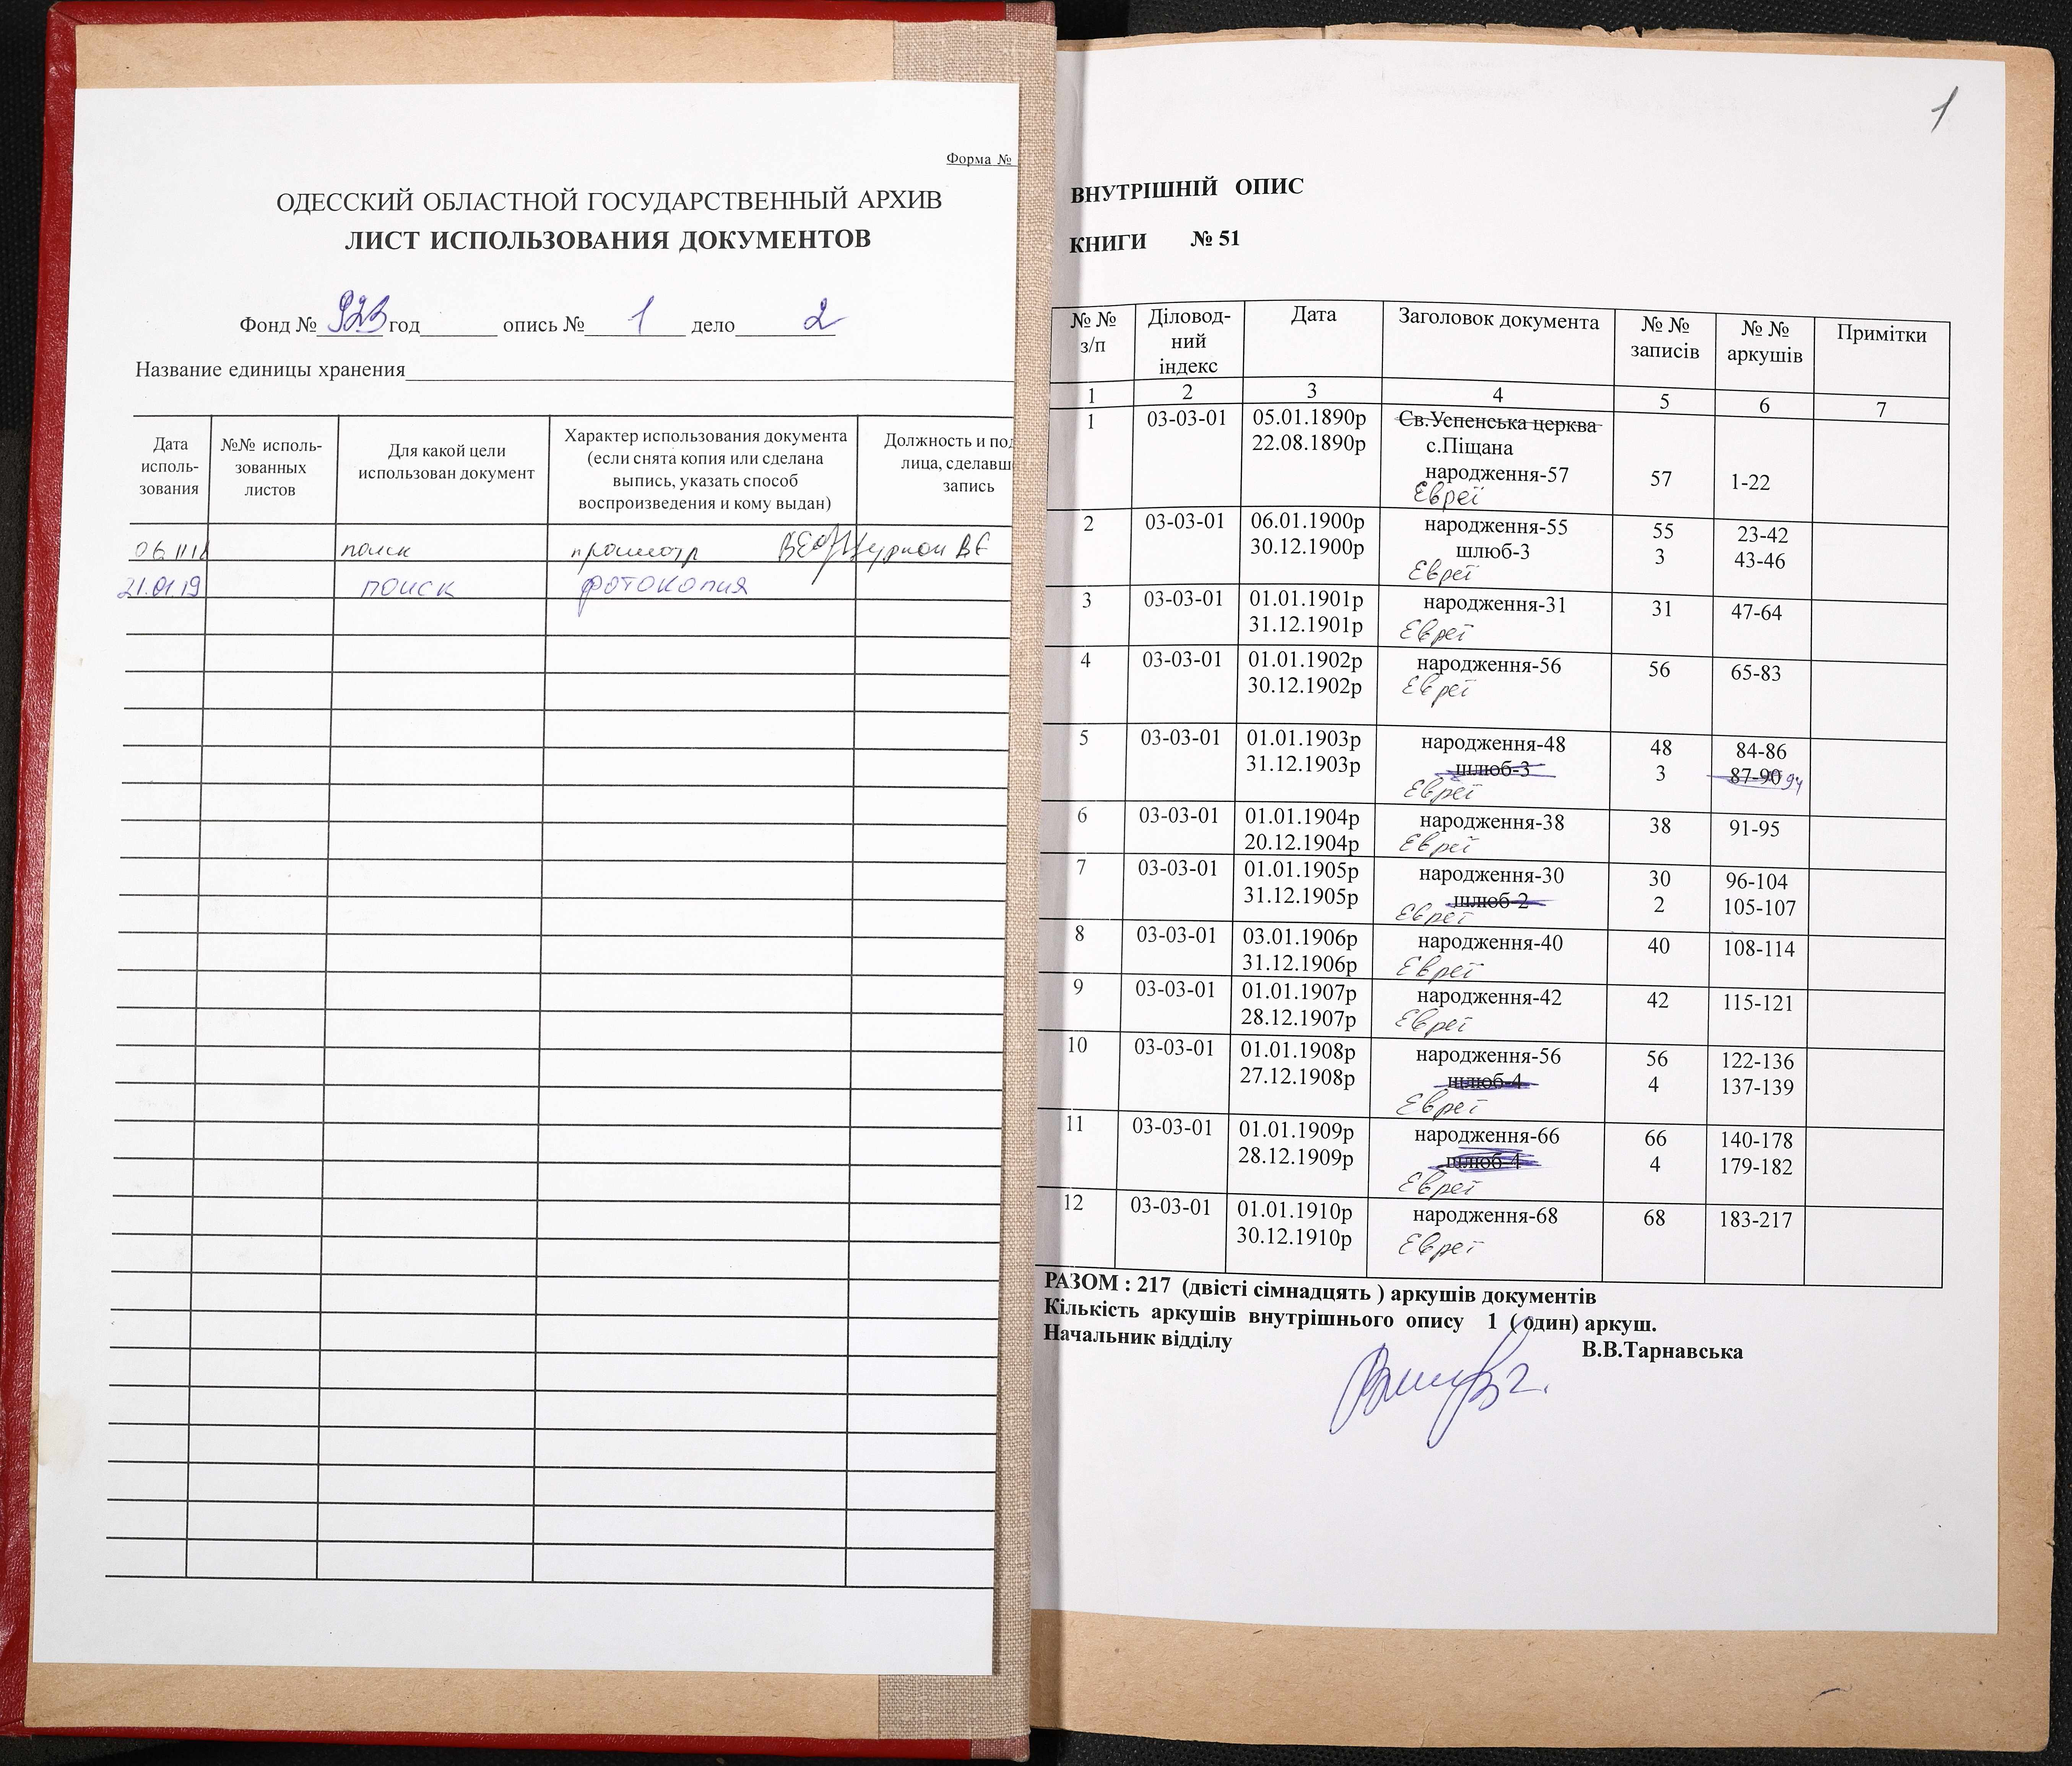 Форма №
ОДЕССКИЙ ОБЛАСТНОЙ ГОСУДАРСТВЕННЫЙ АРХИВ
ЛИСТ ИСПОЛЬЗОВАНИЯ ДОКУМЕНТОВ
Фонд № 923 год опись № 1 дело 2
Название единицы хранения
Дата исполь-зования №№ исполь-зованных листов Для какой цели использован документ Характер использования документа (если снята копия или сделана выпись, указать способ воспроизведения и кому выдан) Должность и под лица, сделавш запись
поиск просмотр
21.01.19 поиск фотокопия
1
ВНУТРІШНІЙ ОПИС
КНИГИ № 51
№ № з/п Діловод-ний індекс Дата Заголовок документа № № записів № № аркушів Примітки
1 2 3 4 5 6 7
1 03-03-01 05.01.1890р Св.Успенська церква
22.08.1890р с.Піщана
народження-57 57 1-22
Євреї
2 03-03-01 06.01.1900р народження-55 55 23-42
30.12.1900р шлюб-3 3 43-46
Євреї
3 03-03-01 01.01.1901р народження-31 31 47-64
31.12.1901р Євреї
4 03-03-01 01.01.1902р народження-56 56 65-83
30.12.1902р Євреї
5 03-03-01 01.01.1903р народження-48 48 84-86
31.12.1903р шлюб-3 3 87-90 94
Євреї
6 03-03-01 01.01.1904р народження-38 38 91-95
20.12.1904р Євреї
7 03-03-01 01.01.1905р народження-30 30 96-104
31.12.1905р шлюб-2 2 105-107
Євреї
8 03-03-01 03.01.1906р народження-40 40 108-114
31.12.1906р Євреї
9 03-03-01 01.01.1907р народження-42 42 115-121
28.12.1907р Євреї
10 03-03-01 01.01.1908р народження-56 56 122-136
27.12.1908р шлюб-4 4 137-139
Євреї
11 03-03-01 01.01.1909р народження-66 66 140-178
28.12.1909р шлюб-4 4 179-182
Євреї
12 03-03-01 01.01.1910р народження-68 68 183-217
30.12.1910р Євреї
РАЗОМ : 217 (двісті сімнадцять ) аркушів документів
Кількість аркушів внутрішнього опису 1 ( один) аркуш.
Начальник відділу В.В.Тарнавська